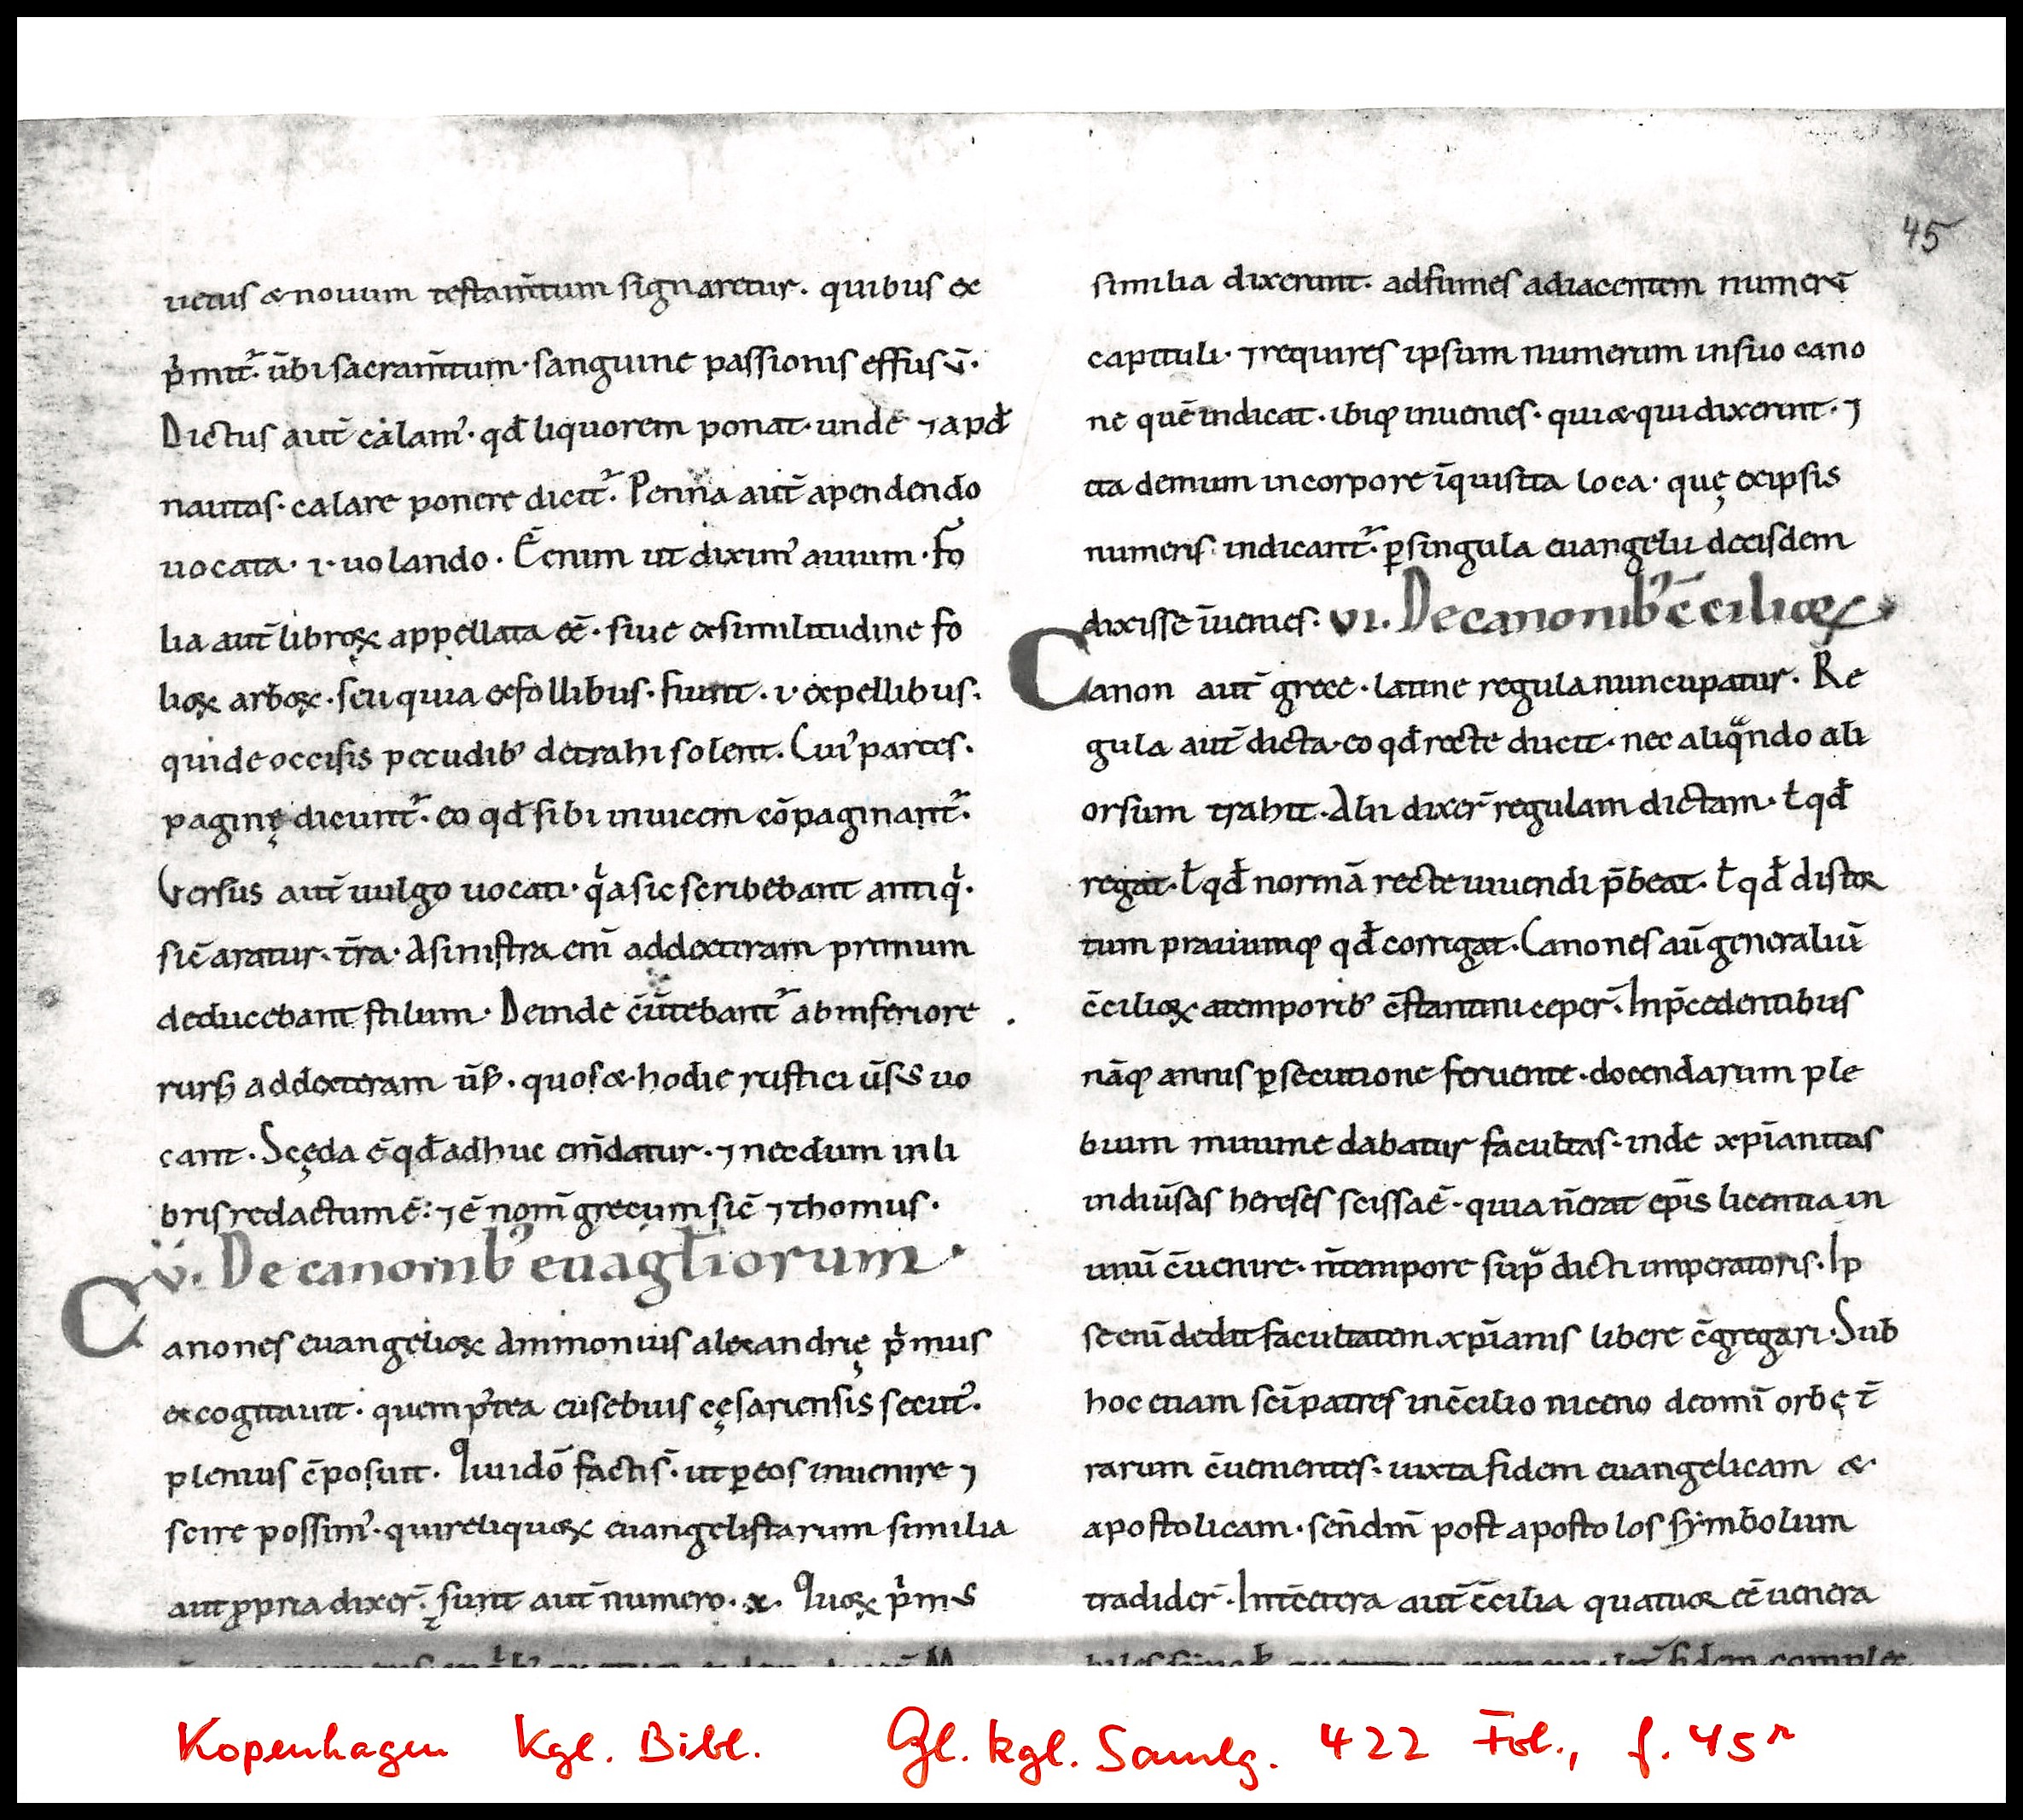 45
uetus & nouum testam̄tum signaretur. quibus ex
p̍mit᷑. ūbi sacram̄tum · sanguine passionis effusū.
Dictus aut̄ calam᾽ · qđ liquorem ponat · unde ⁊ apđ
nautas · calare ponere dicit᷑. Penna aut̄ apendendo
uocata · i · uolando · Ē enim ut dixim᾽ auium · Fo
lia aut̄ libroꝝ appellata eē · siue ex similitudine fo
lioꝝ arboꝝ · seu quia ex follibus · fiunt · i · ex pellibus ·
qui de occisis pecudib᾽ detrahi solent. Cui᾽ partes ·
paginę dicunt᷑ · eo qđ sibi inuicem cōpaginant᷑.
Versus aut̄ uulgo uocati · qͥa sic scribebant antiqͥ ·
sic̄ aratur · t̄ra · A sinistra eni̅ ad dexteram primum
deducebant stilum · Deinde c̄ūtebant᷑ ab inferiore
rurꝰ ad dexteram ūꝰ · quos & hodie rustici ūsꝰ uo
cant. Scęda ē qđ adhuc em̄datur · ⁊ necdum in li
bris redactum ē: ⁊ ē nom̄ grecum sic̄ ⁊ thomus.
v. De canonib᾽ euāgłiorum.
Canones euangelioꝝ Ammonius alexandrię p̍mus
excogitauit · quem p̾tea eusebius cęsariensis secut᾽.
plenius c̄posuit. Qui idō facti s̄ · ut ꝑ eos inuenire ⁊
scire possim᾽ · qui reliquoꝝ euangelistarum similia
aut ꝓpria dixer̄. sunt aut̄ numero · x · Quoꝝ p̍mꝰ
similia dixerunt · ad fiumes adiacentem numerū
capituli · ⁊ requires ipsum numerum in suo cano
ne quē indicat · ibiqꝫ inuenies · qui & qui dixerint · ⁊
ita demum in corpore īquisita loca · quę ex ipsis
numeris indicant᷑ · ꝑ singula euangelii de eisdem
dixisse īuenies. vi. De canonib᾽ c̄cilioꝝ
Canon aut̄ grece · latine regula nuncupatur. Re
gula aut̄ dicta · eo qđ recte ducit · nec aliqͣndo ali
orsum trahit. Alii dixer̄ regulam dictam · ł qđ
regat · ł qđ normā recte uiuendi p̄beat · ł qđ distor
tum prauumqꝫ qđ corrigat. Canones aū generaliū
c̄cilioꝝ a temporib᾽ c̄stantini ceper̄. In p̄cedentibus
nāqꝫ annis ꝑsecutione feruente · docendarum ple
bium minime dabatur facultas · inde xp̄ianitas
in diūsas hereses scissa ē · quia n̄ erat ep̄is licentia in
unū c̄uenire · n̄ tempore supͣdicti imperatoris. Ip
se eni̅ dedit facultatem xp̄ianis libere c̄gregari. Sub
hoc etiam sc̄i patres in c̄cilio niceno de omī orbę t̄
rarum c̄uenientes · iuxta fidem euangelicam &
apostolicam · sc̄ndm̄ post apostolos symbolum
tradider̄. Int̄ cetera aut̄ c̄cilia quatuor eē uenera
Kopenhagen Kgl. Bibl. Gl. kgl. Samlg. 422 Fol., f. 45r